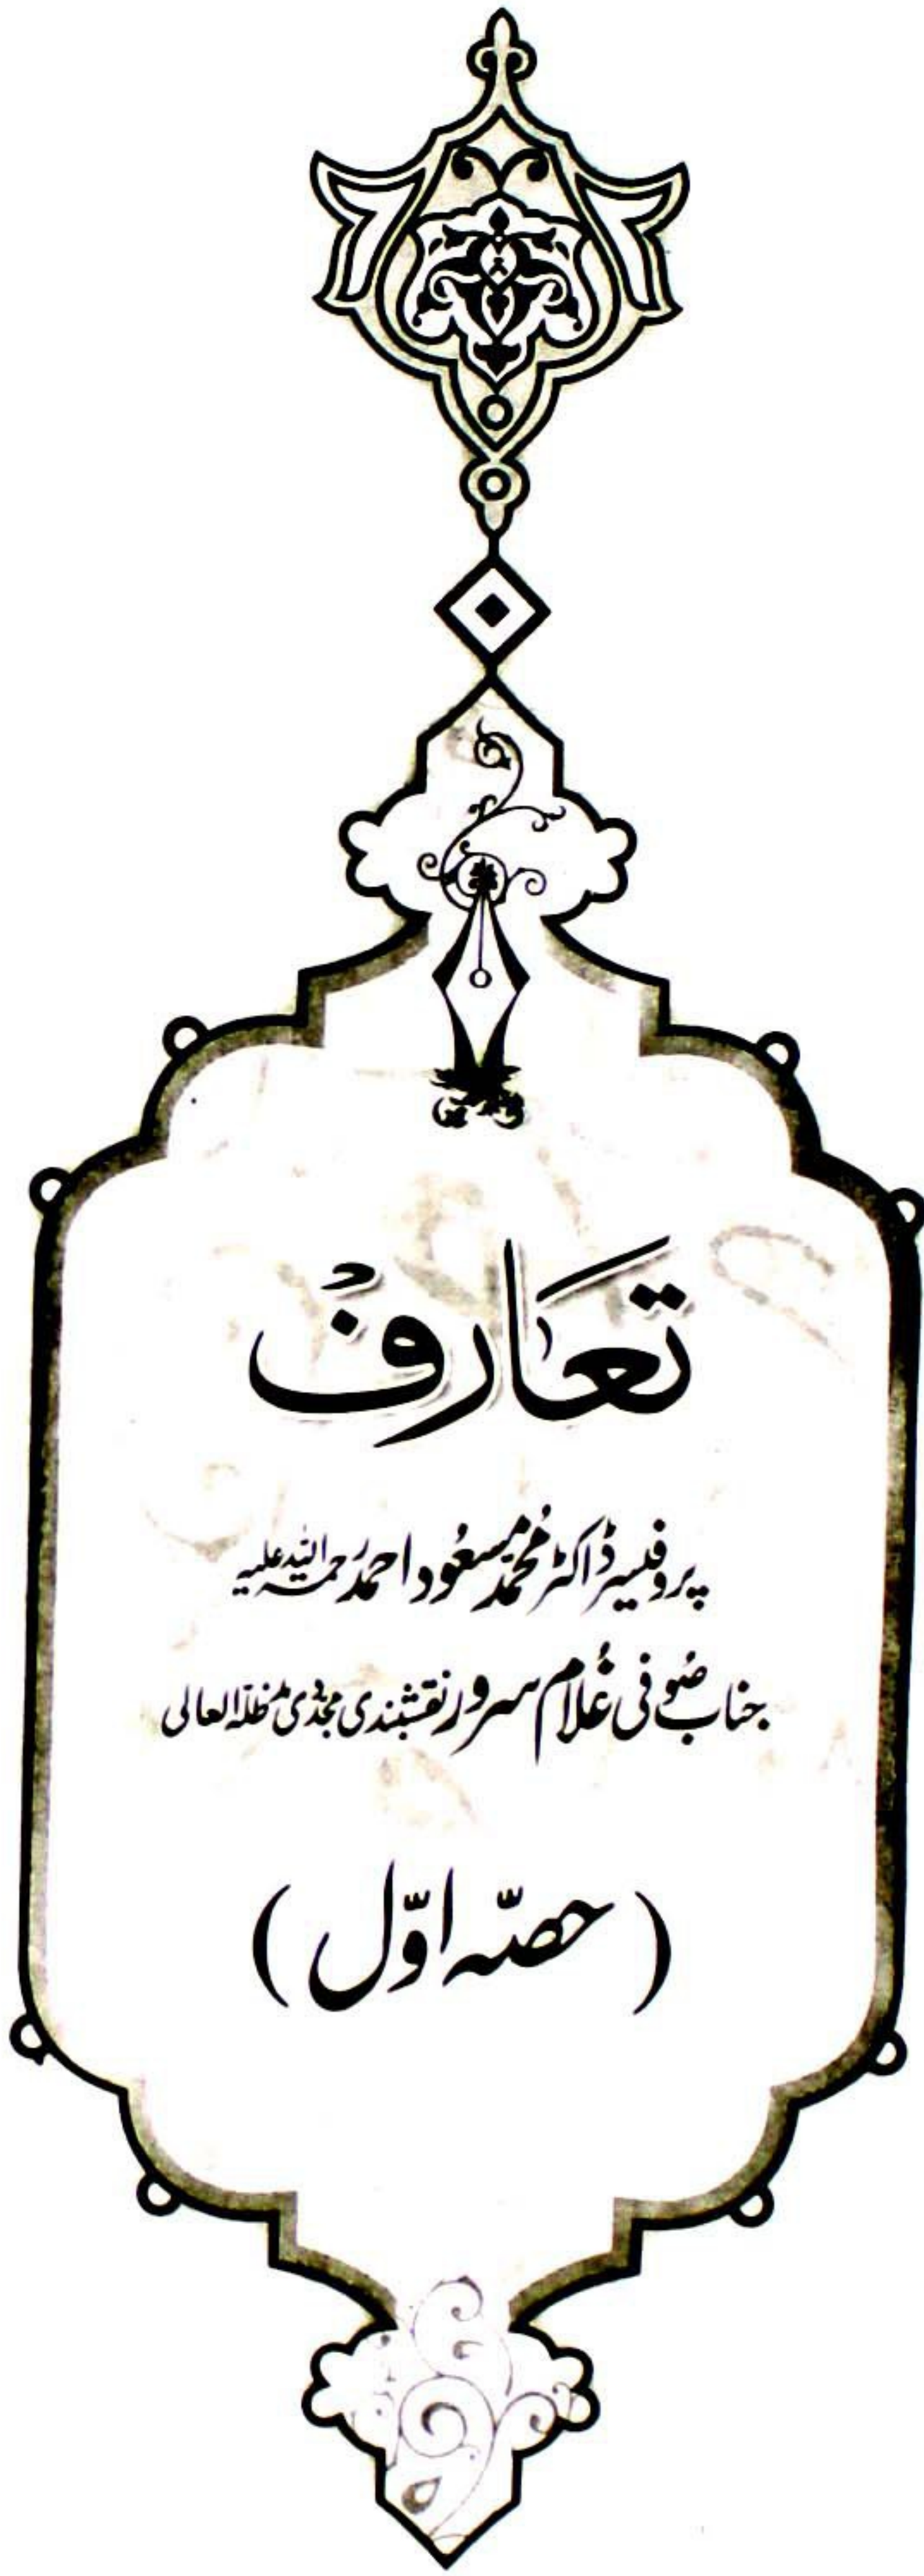 تعَارفْ
پروفیسر ڈاکٹر محُمّد مسعُود احمد رحمۃ اللہ علیہ
جناب صُوفی غُلام سرور نقشبندی مجدّدی مدظلہ العالی
(حصّہ اوّل)